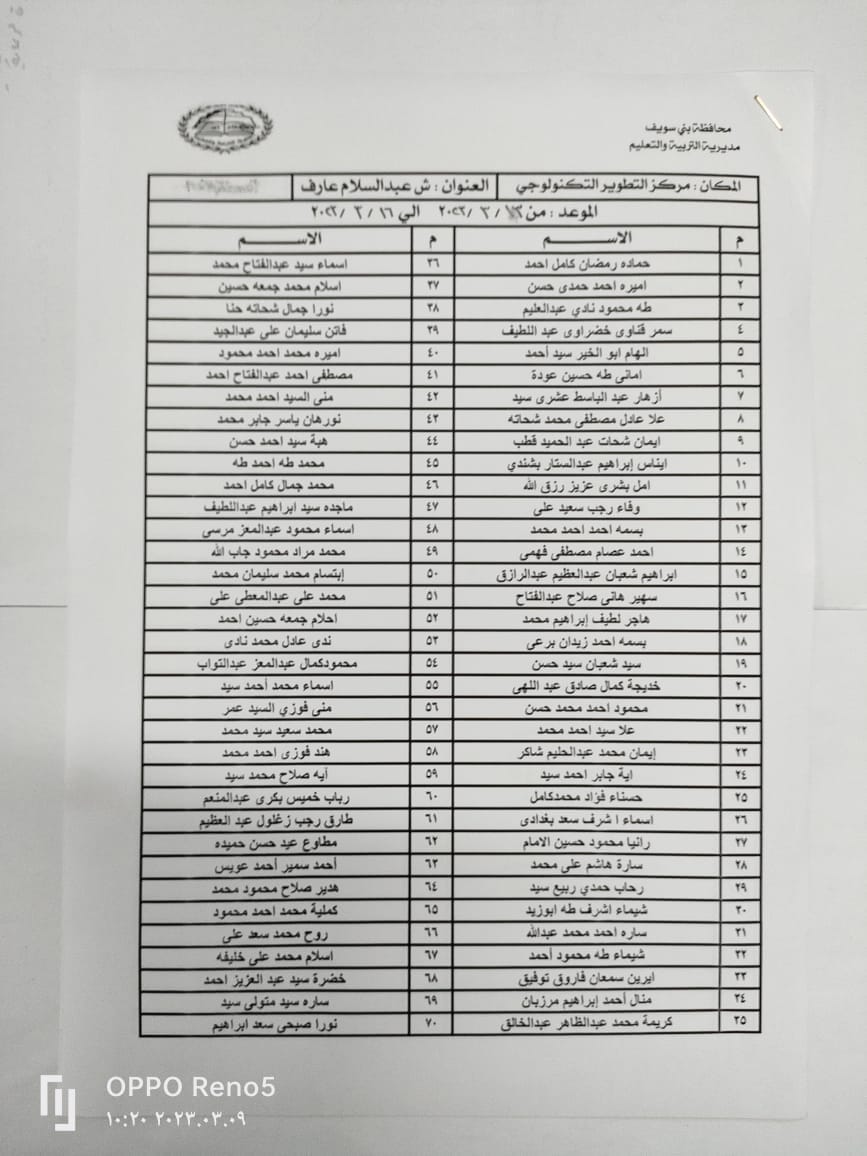 محافظة بني سويف
مديرية التربية والتعليم
المكان : مركز التطوير التكنولوجي العنوان : ش عبدالسلام عارف
الموعد : من ١٣ / ٣ / ٢٠٢٣ الي ١٦ / ٣ / ٢٠٢٣
م الاســـــم م الاســـــم
١ حماده رمضان كامل احمد ٣٦ اسماء سيد عبدالفتاح محمد
٢ اميره احمد حمدى حسن ٣٧ اسلام محمد جمعه حسين
٣ طه محمود نادي عبدالعليم ٣٨ نورا جمال شحاته حنا
٤ سمر قناوى خضراوى عبد اللطيف ٣٩ فاتن سليمان على عبدالجيد
٥ الهام ابو الخير سيد أحمد ٤٠ اميره محمد احمد محمود
٦ امانى طه حسين عودة ٤١ مصطفى احمد عبدالفتاح احمد
٧ أزهار عبد الباسط عشرى سيد ٤٢ منى السيد احمد محمد
٨ علا عادل مصطفى محمد شحاته ٤٣ نورهان ياسر جابر محمد
٩ ايمان شحات عبد الحميد قطب ٤٤ هبة سيد احمد حسن
١٠ ايناس إبراهيم عبدالستار بشندي ٤٥ محمد طه احمد طه
١١ امل بشرى عزيز رزق الله ٤٦ محمد جمال كامل احمد
١٢ وفاء رجب سعيد على ٤٧ ماجده سيد ابراهيم عبداللطيف
١٣ بسمه احمد احمد محمد ٤٨ اسماء محمود عبدالمعز مرسى
١٤ احمد عصام مصطفى فهمى ٤٩ محمد مراد محمود جاب الله
١٥ ابراهيم شعبان عبدالعظيم عبدالرازق ٥٠ إبتسام محمد سليمان محمد
١٦ سهير هانى صلاح عبدالفتاح ٥١ محمد على عبدالمعطى على
١٧ هاجر لطيف إبراهيم محمد ٥٢ احلام جمعه حسين احمد
١٨ بسمه احمد زيدان برعى ٥٣ ندى عادل محمد نادى
١٩ سيد شعبان سيد حسن ٥٤ محمودكمال عبدالمعز عبدالتواب
٢٠ خديجة كمال صادق عبد اللهى ٥٥ اسماء محمد أحمد سيد
٢١ محمود احمد محمد حسن ٥٦ منى فوزي السيد عمر
٢٢ علا سيد احمد محمد ٥٧ محمد سعيد سيد محمد
٢٣ إيمان محمد عبدالحليم شاكر ٥٨ هند فوزى احمد محمد
٢٤ اية جابر احمد سيد ٥٩ آيه صلاح محمد سيد
٢٥ حسناء فؤاد محمدكامل ٦٠ رباب خميس بكرى عبدالمنعم
٢٦ اسماء ا شرف سعد بغدادى ٦١ طارق رجب زغلول عبد العظيم
٢٧ رانيا محمود حسين الامام ٦٢ مطاوع عيد حسن حميده
٢٨ سارة هاشم على محمد ٦٣ أحمد سمير أحمد عويس
٢٩ رحاب حمدي ربيع سيد ٦٤ هدير صلاح محمود محمد
٣٠ شيماء اشرف طه ابوزيد ٦٥ كملية محمد احمد محمود
٣١ ساره احمد محمد عبدالله ٦٦ روح محمد سعد على
٣٢ شيماء طه محمود أحمد ٦٧ اسلام محمد على خليفه
٣٣ ايرين سمعان فاروق توفيق ٦٨ خضرة سيد عبد العزيز احمد
٣٤ منال أحمد إبراهيم مرزبان ٦٩ ساره سيد متولى سيد
٣٥ كريمة محمد عبدالظاهر عبدالخالق ٧٠ نورا صبحى سعد ابراهيم
OPPO Reno5
٢٠٢٣.٠٣.٠٩ ١٠:٢٠